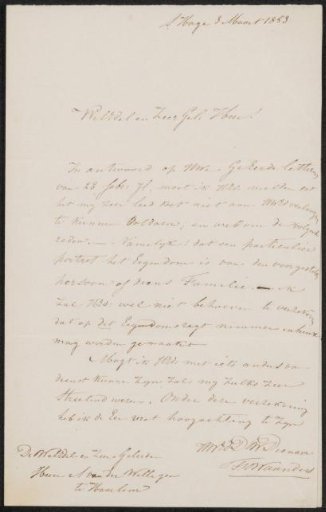 's Hage 3 Maart 1853
WelEdel en Zeer Gel. Heer!
In antwoord op Uwe Geëerde letteren
van 28 Febr. jl. moet ik UEd. melden dat
het mij zeer leed doet niet aan Uw verlangen
te kunnen voldoen, en wel om de volgende
reden. — Namelijk: dat een particulier
portret het Eigendom is van den voorgestelden
persoon of diens Familie — ik
zal UEd. wel niet behoeven te verzekeren
dat op dit Eigendomsregt nimmer inbreuk
mag worden gemaakt
Mogt ik UEd. met iets anders van
dienst kunnen zijn zal mij zulks zeer
streelend wezen. Onder deze verzekering
heb ik de Eer met hoogachting te zijn
UwEd. Dw. Dienaar
De WelEdele Zeer Geleerde
Heer A van der Willigen
te Haarlem